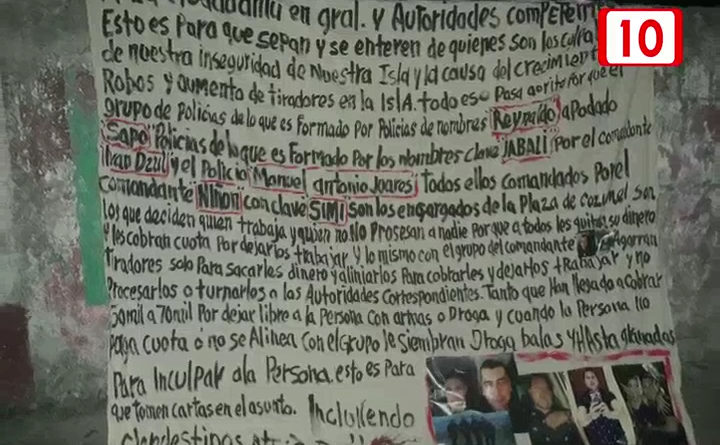 10
en gral. y Autoridades
Esto es Para que sepan y se enteren de quienes son los
de nuestra inseguridad de Nuestra Isla y la causa del
Robos y aumento de tiradores en la ISlA. todo eso Pasa
grupo de Policias de lo que es formado Por Policias de nombres Reynaldo apodado
Sapo Policias de lo que es Formado Por los nombres clave JABALI Por el comandante
Dzul y el Policia Manuel antonio Joares Todos ellos Comandados Por el
comandante Niñon con clave SIMI Son los encargados de la Plaza de cozumel son
los que deciden quien trabaja y quien no. No Prosesan a nadie Por que a todos les quitan su dinero
y les cobran cuota Por dejarlos trabajar y lo mismo con el grupo del comandante Agarran
tiradores solo Para sacarles dinero y aliniarlos Para cobrarles y dejarlos trabajar y no
Procesarlos o turnarlos a las Autoridades Correspondientes. Tanto que Han llegado a Cobrar
50mil a 70mil Por dejar libre a la Persona Con armas o Droga y cuando la Persona no
Paga cuota o no se Alinea Con el grupo le siembran Droga balas y HAsta granadas
Para Inculpar ala Persona. esto es Para
que tomen cartas en el asunto. Inclullendo
clandestinos